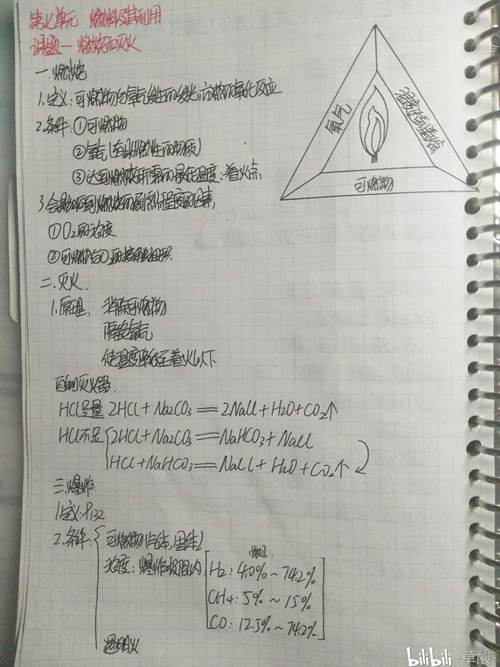 第七单元 燃料及其利用
课题一 燃烧和灭火
一.燃烧
1.定义:可燃物与氧气发生的发光、放热的氧化反应
2.条件:①可燃物
②氧气(有助燃性的物质)
③达到燃烧所需的最低温度:着火点
3.会影响可燃物燃烧剧烈程度的因素
①O₂的浓度
②可燃物与O₂的接触面积
氧气
温度达到着火点
可燃物
二.灭火
1.原理:消除可燃物
隔绝氧气
使温度降低至着火点以下
自制灭火器
HCl足量 2HCl+Na2CO3═2NaCl+H2O+CO2↑
HCl不足 2HCl+Na2CO3═NaHCO3+NaCl
HCl+NaHCO3═NaCl+H2O+CO2↑
三.爆炸
1.定义:P132
2.条件:可燃物(气体,固体)
浓度:爆炸极限内
H2:4.0%~74.2%
CH4:5%~15%
CO:12.5%~74.2%
遇明火
bilibili